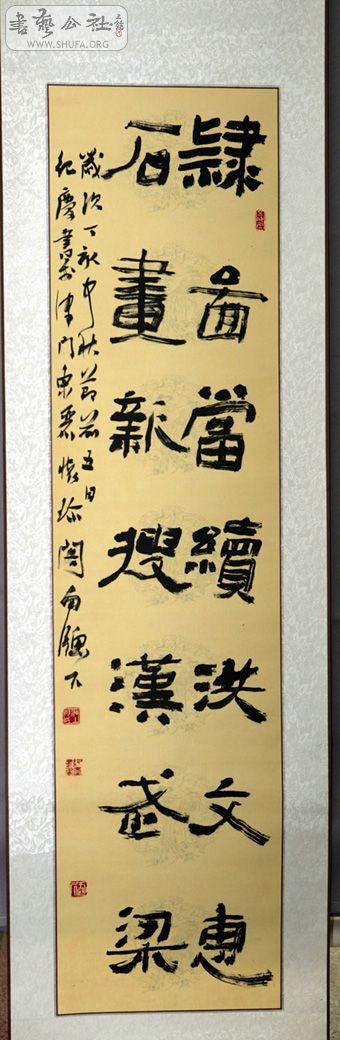 書藝公社
WWW.SHUFA.ORG
隸啚當續洪文惠
石畫新搜漢武梁
歲次丁亥中秋節前五日
紀慶書於津門東麗懷珍閣南窗下